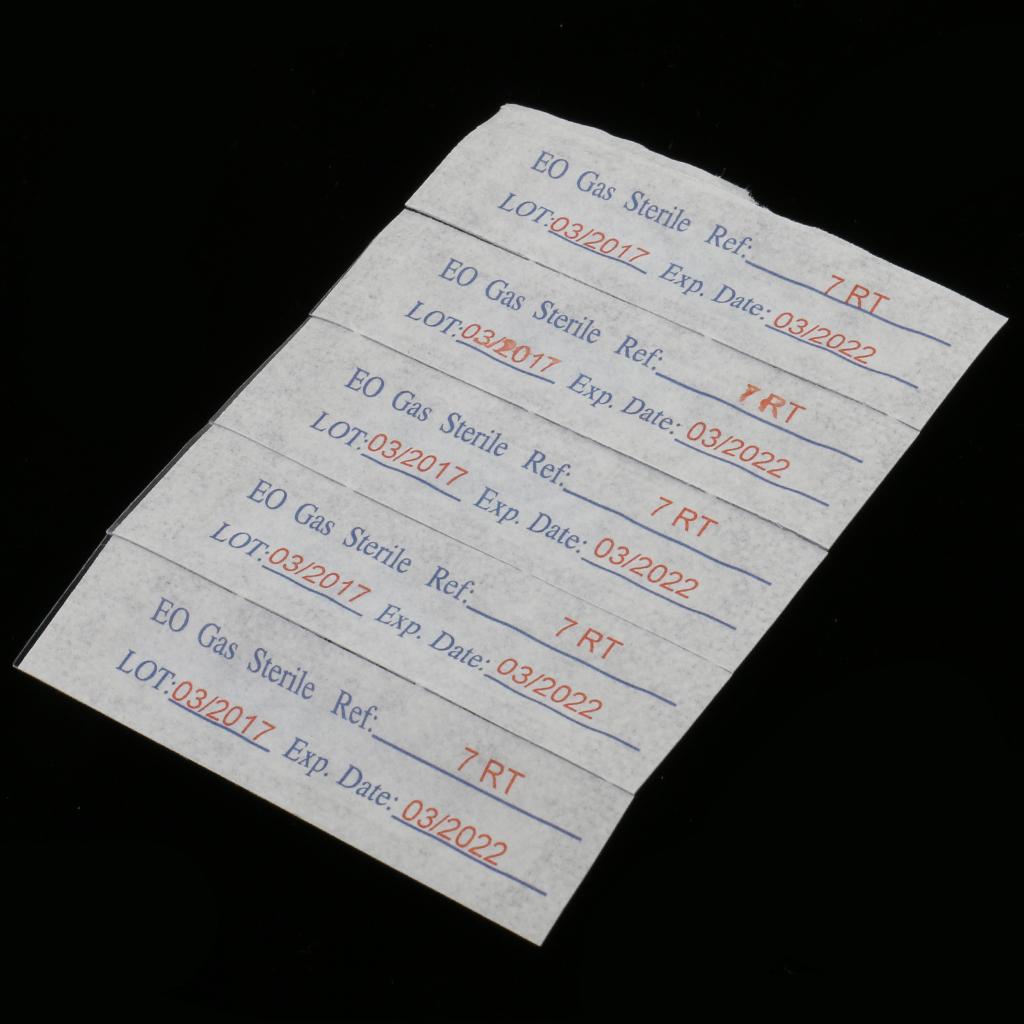 EO Gas Sterile Ref: 7 RT
LOT:03/2017 Exp. Date: 03/2022
EO Gas Sterile Ref: 7 RT
LOT:03/2017 Exp. Date: 03/2022
EO Gas Sterile Ref: 7 RT
LOT:03/2017 Exp. Date: 03/2022
EO Gas Sterile Ref: 7 RT
LOT:03/2017 Exp. Date: 03/2022
EO Gas Sterile Ref: 7 RT
LOT:03/2017 Exp. Date: 03/2022